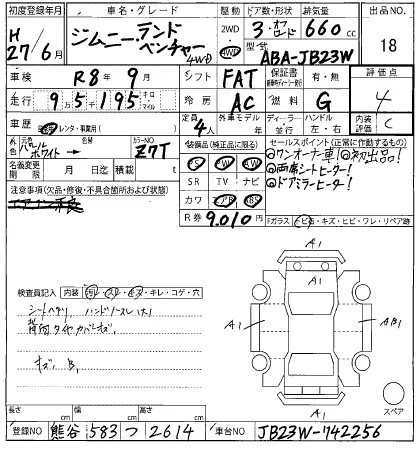 初度登録年月 車名・グレード 駆動 ドア数・形状 排気量 出品NO.
H 27/6月 ジムニー ランドベンチャー 4WD 2WD 4WD 3・オフロード 660cc 18
型式 ABA-JB23W
車検 R8年9月 シフト FAT 保証書 有・無 評価点
走行 9万5千195 キロ マイル 冷房 AC 燃料 G 4
車歴 自家用・レンタ・事業用( ) 定員 4人 外車モデル 年 ディーラー 並行 ハンドル 左・右 内装 C
色 元色 パールホワイト→ 色替 カラーNO. Z7T 装備品(純正品に限る) セールスポイント(正常に作動するもの)
PS PW AW ◎ワンオーナー車!◎初出品!
名義変更期限 月 日迄 積載 t SR TV ナビ ◎両席シートヒーター!
注意事項(欠品・修復・不具合箇所および状態) カワ エアB ABS ◎ドアミラーヒーター!
エアコン不良 R券 9,010円 Fガラス トビ石・キズ・ヒビ・ワレ・リペア跡
検査員記入 内装 汚レ・スレ・キズ・キレ・コゲ・穴
シートヘタリ ハンドルスレ
背面タイヤカバーキズ
キズ B1
A1
A1
A1
AB1
A1
スペア
長さ cm 幅 cm 高さ cm
登録NO 熊谷 583 つ 2614 車台NO JB23W-742256